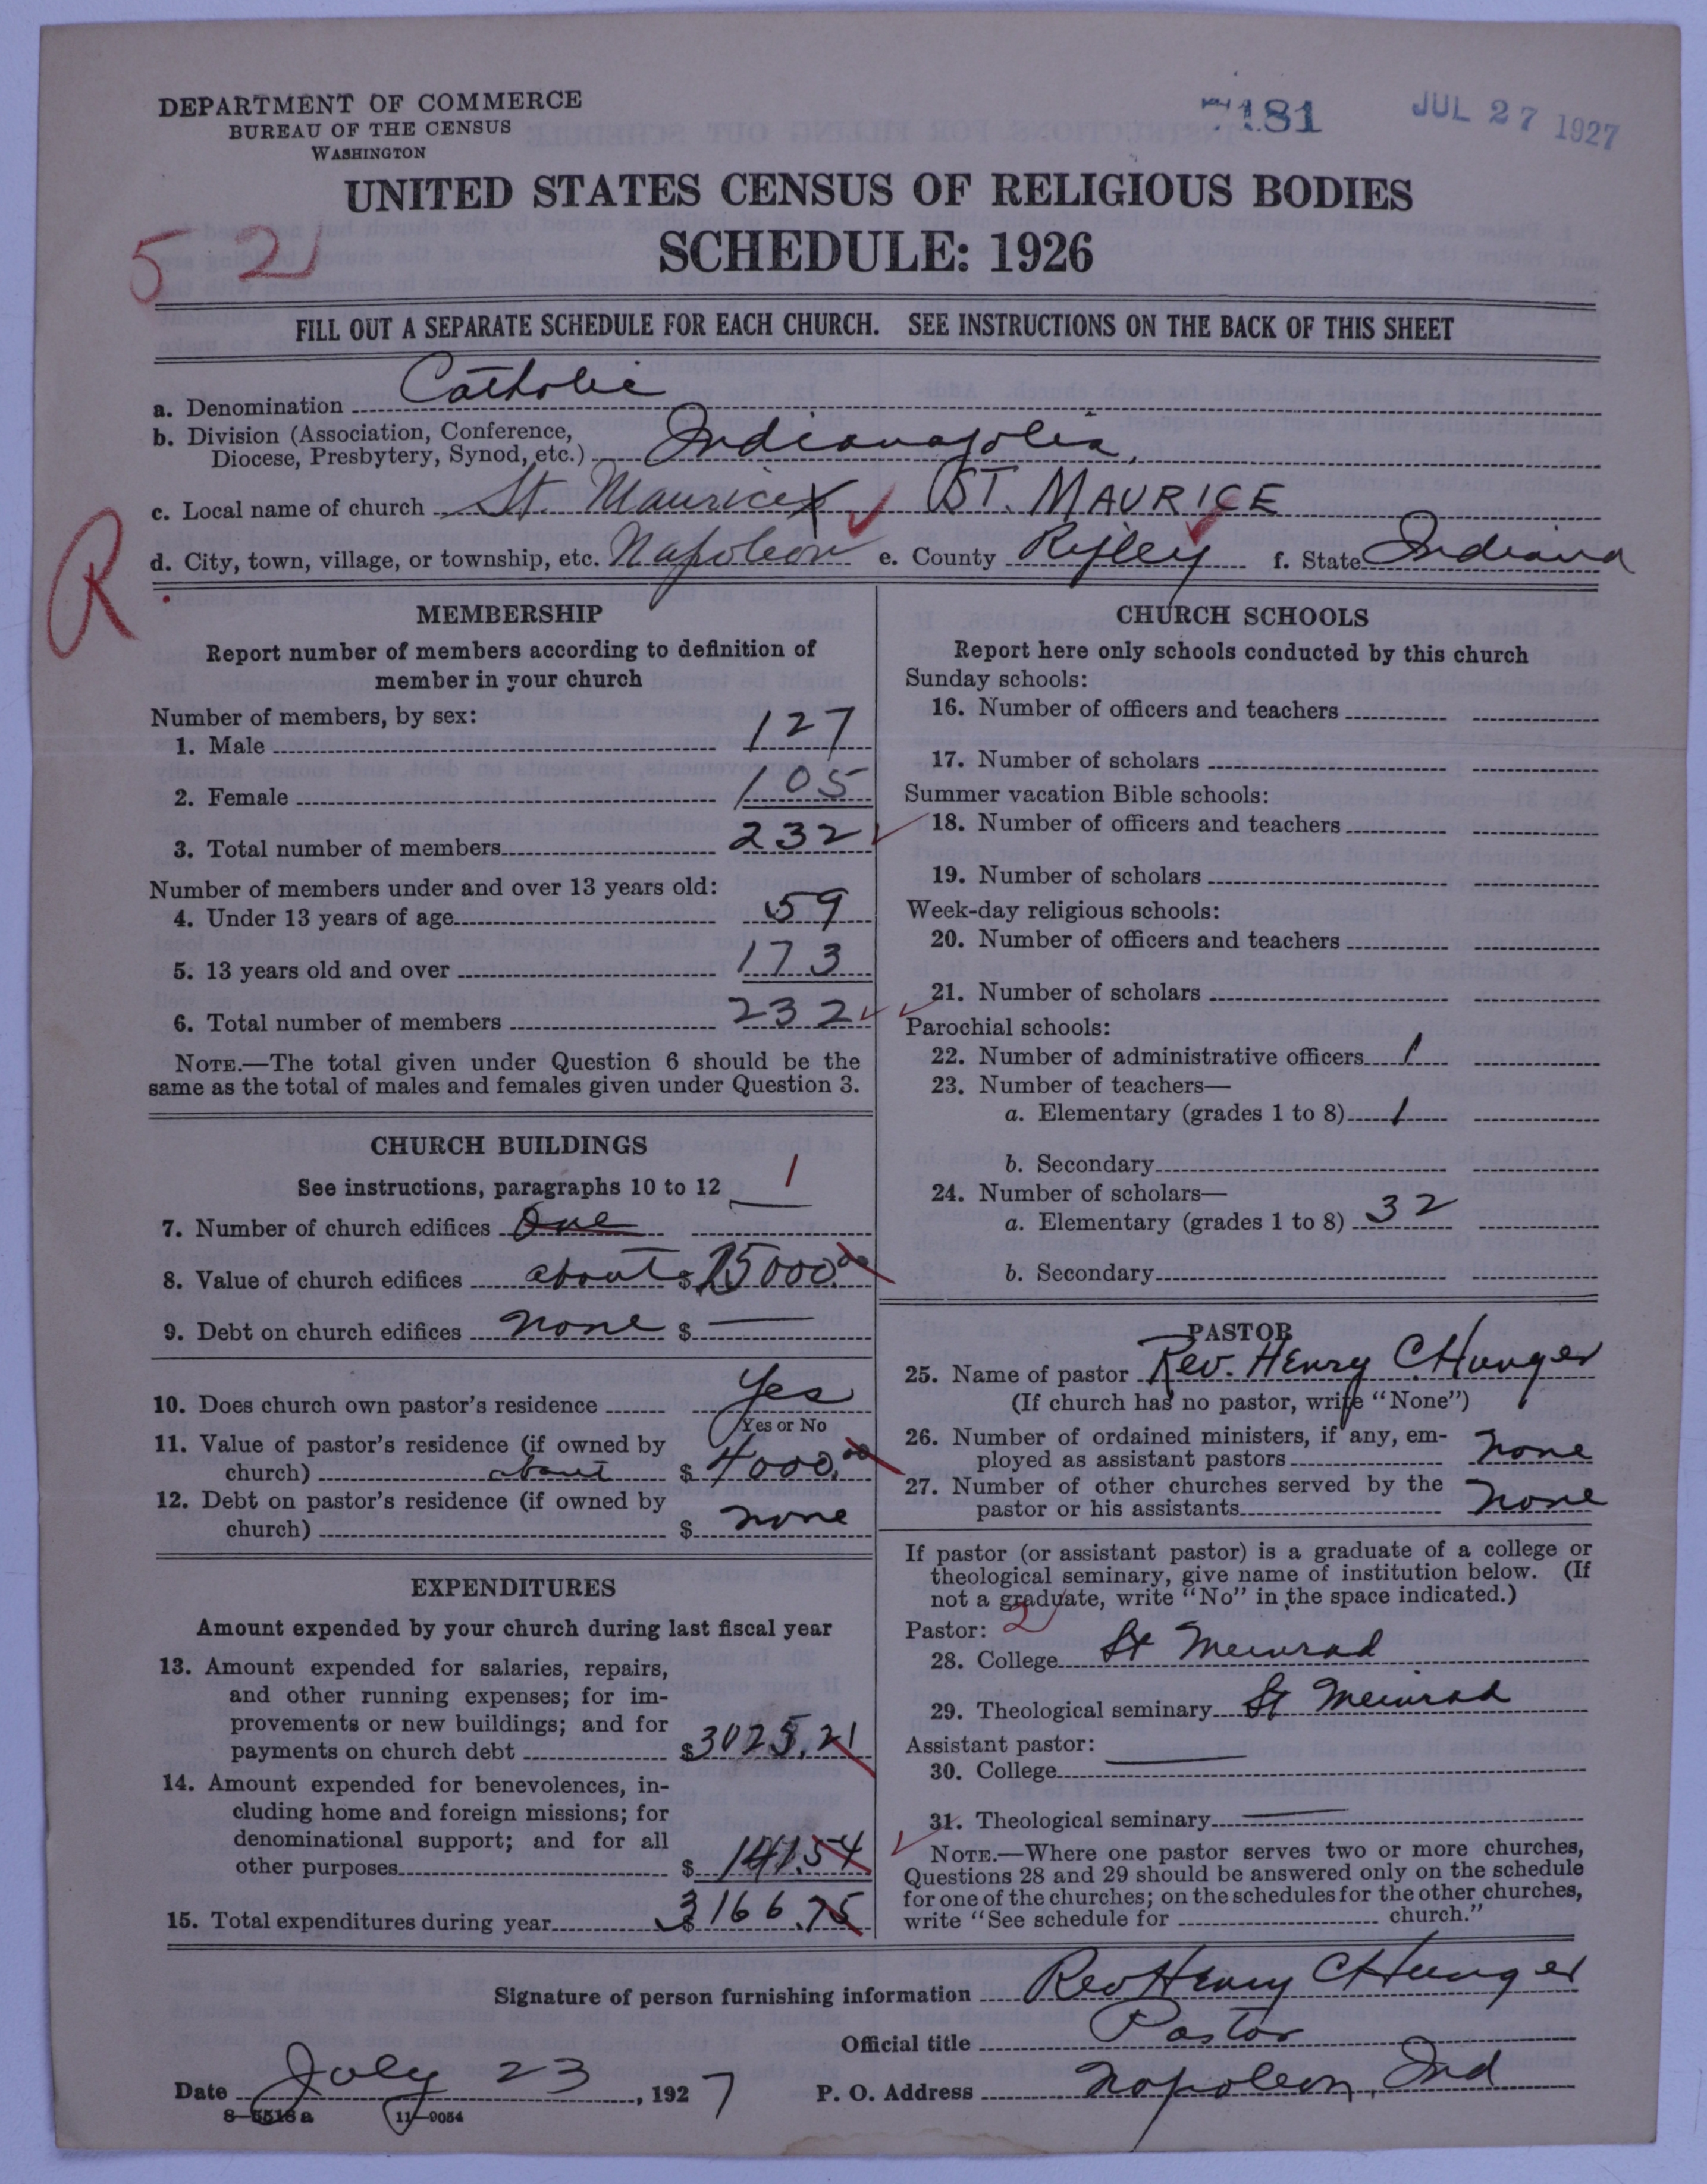 DEPARTMENT OF COMMERCE
BUREAU OF THE CENSUS
WASHINGTON
7181
JUL 27 1927
UNITED STATES CENSUS OF RELIGIOUS BODIES
SCHEDULE: 1926
5 2
FILL OUT A SEPARATE SCHEDULE FOR EACH CHURCH. SEE INSTRUCTIONS ON THE BACK OF THIS SHEET
a. Denomination Catholic
b. Division (Association, Conference,
Diocese, Presbytery, Synod, etc.) Indianapolis,
c. Local name of church St. Maurice X ST. MAURICE
R
d. City, town, village, or township, etc. Napoleon e. County Ripley f. State Indiana
MEMBERSHIP
Report number of members according to definition of
member in your church
Number of members, by sex:
1. Male 127
2. Female 105
3. Total number of members 232
Number of members under and over 13 years old:
4. Under 13 years of age 59
5. 13 years old and over 173
6. Total number of members 232
NOTE.—The total given under Question 6 should be the
same as the total of males and females given under Question 3.
CHURCH BUILDINGS
See instructions, paragraphs 10 to 12 1
7. Number of church edifices One
8. Value of church edifices about $ 15000.00
9. Debt on church edifices none $ —
10. Does church own pastor's residence Yes
Yes or No
11. Value of pastor's residence (if owned by
church) about $ 4000.00
12. Debt on pastor's residence (if owned by
church) $ none
EXPENDITURES
Amount expended by your church during last fiscal year
13. Amount expended for salaries, repairs,
and other running expenses; for im-
provements or new buildings; and for
payments on church debt $3025.21
14. Amount expended for benevolences, in-
cluding home and foreign missions; for
denominational support; and for all
other purposes $ 141.54
15. Total expenditures during year $ 3166.75
CHURCH SCHOOLS
Report here only schools conducted by this church
Sunday schools:
16. Number of officers and teachers
17. Number of scholars
Summer vacation Bible schools:
18. Number of officers and teachers
19. Number of scholars
Week-day religious schools:
20. Number of officers and teachers
21. Number of scholars
Parochial schools:
22. Number of administrative officers 1
23. Number of teachers—
a. Elementary (grades 1 to 8) 1
b. Secondary
24. Number of scholars—
a. Elementary (grades 1 to 8) 32
b. Secondary
PASTOR
25. Name of pastor Rev. Henry C Hunger
(If church has no pastor, write "None")
26. Number of ordained ministers, if any, em-
ployed as assistant pastors none
27. Number of other churches served by the
pastor or his assistants none
If pastor (or assistant pastor) is a graduate of a college or
theological seminary, give name of institution below. (If
not a graduate, write "No" in the space indicated.)
Pastor: 2
28. College St Meinrad
29. Theological seminary St Meinrad
Assistant pastor:
30. College
31. Theological seminary
NOTE.—Where one pastor serves two or more churches,
Questions 28 and 29 should be answered only on the schedule
for one of the churches; on the schedules for the other churches,
write "See schedule for church."
Signature of person furnishing information Rev Henry C Hunger
Official title Pastor
Date July 23, 1927 P. O. Address Napoleon, Ind
8—5516a 11—9054